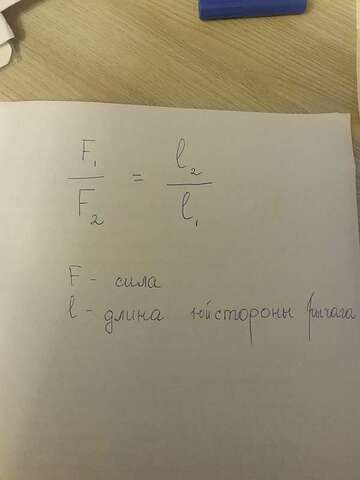 F₁/F₂ = l₂/l₁
F - сила
l - длина 1ой стороны рычага